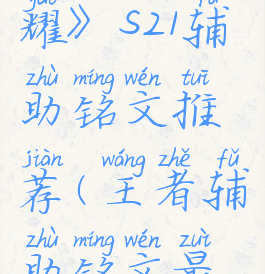 耀》S21辅
zhù míng wén tuī
助铭文推
jiàn wáng zhě fǔ
荐(王者辅
zhù míng wén zuì
助铭文最